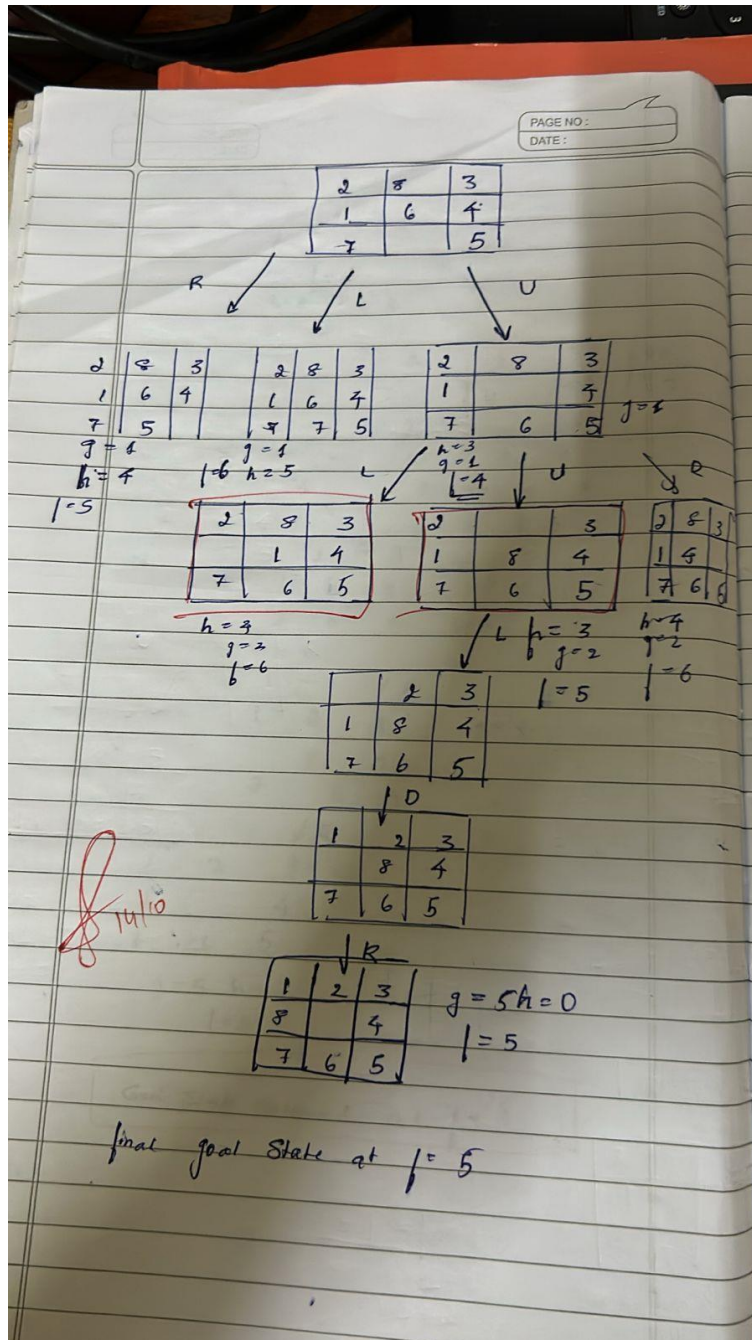 PAGE NO :
DATE :
2 8 3
1 6 4
7 5
R L U
2 8 3
1 6 4
7 5
g = 1
h = 4
f = 5
2 8 3
1 6 4
7 5
g = 1
f = 6 h = 5
2 8 3
1 4
7 6 5
g = 1
h = 3
g = 1
f = 4
L U R
2 8 3
1 4
7 6 5
h = 4
g = 2
f = 6
2 3
1 8 4
7 6 5
h = 3
g = 2
f = 5
2 8 3
1 4
7 6 5
h = 4
g = 2
f = 6
L
2 3
1 8 4
7 6 5
D
1 2 3
8 4
7 6 5
14/10
R
1 2 3
8 4
7 6 5
g = 5 h = 0
f = 5
final goal State at f = 5